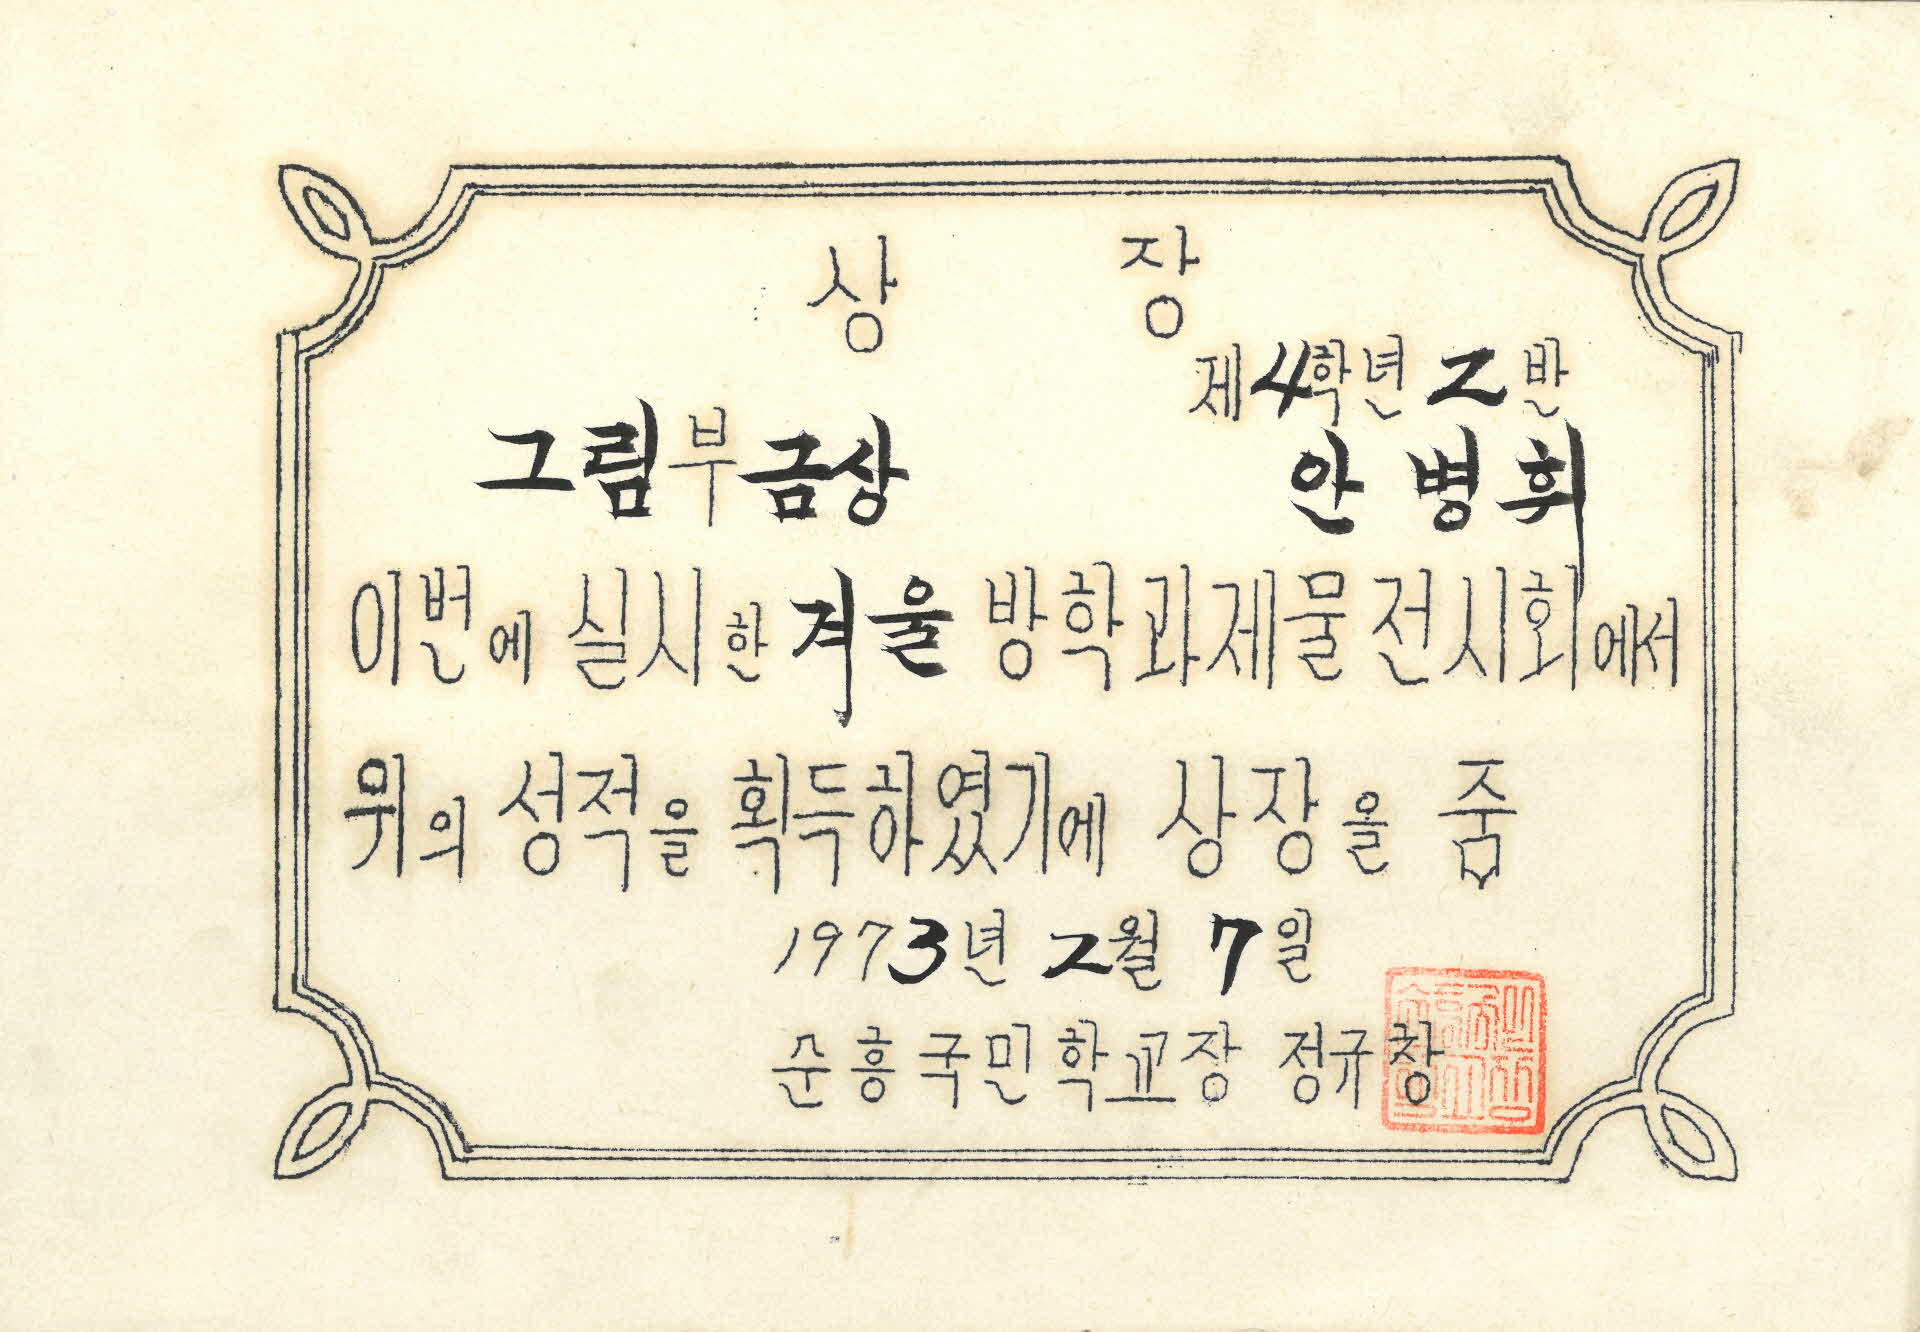 상 장
제4학년 2반
그림부 금상 안병휘
이번에 실시한 겨울 방학과제물전시회에서
위의 성적을 획득하였기에 상장을 줌
1973년 2월 7일
순흥국민학교장 정규창